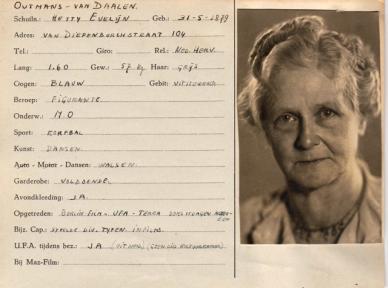 OUTMANS - VAN DAALEN.
Schuiln.: HETTY EVELIJN Geb.: 31-5-1879
Adres: VAN DIEPENBURCHSTRAAT 104
Tel.: Giro: Rel.: NED. HERV.
Lang: 1.60 Gew.: 57 kg Haar: GRIJS
Oogen: BLAUW Gebit: UITSTEKEND
Beroep: FIGURANTE
Onderw.: M.O
Sport: KORFBAL
Kunst: DANSEN
Auto - Motor - Dansen: WALSEN
Garderobe: VOLDOENDE
Avondkleeding: JA
Opgetreden: BERLIN FILM - UFA - TERRA
Bijz. Cap.: SPEELDE DIV. TYPEN IN FILMS.
U.F.A. tijdens bez.: JA
Bij Maz-Film: